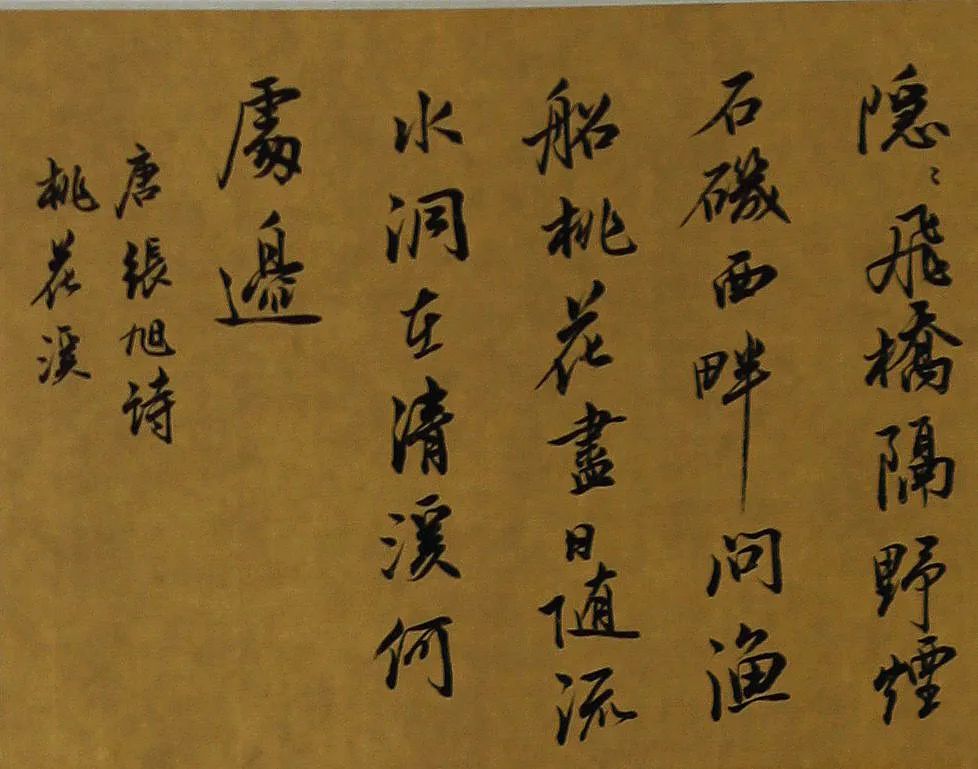 隱〻飛橋隔野煙
石磯西畔問漁
船桃花盡日随流
水洞在清溪何
處邊
唐張旭詩
桃花溪